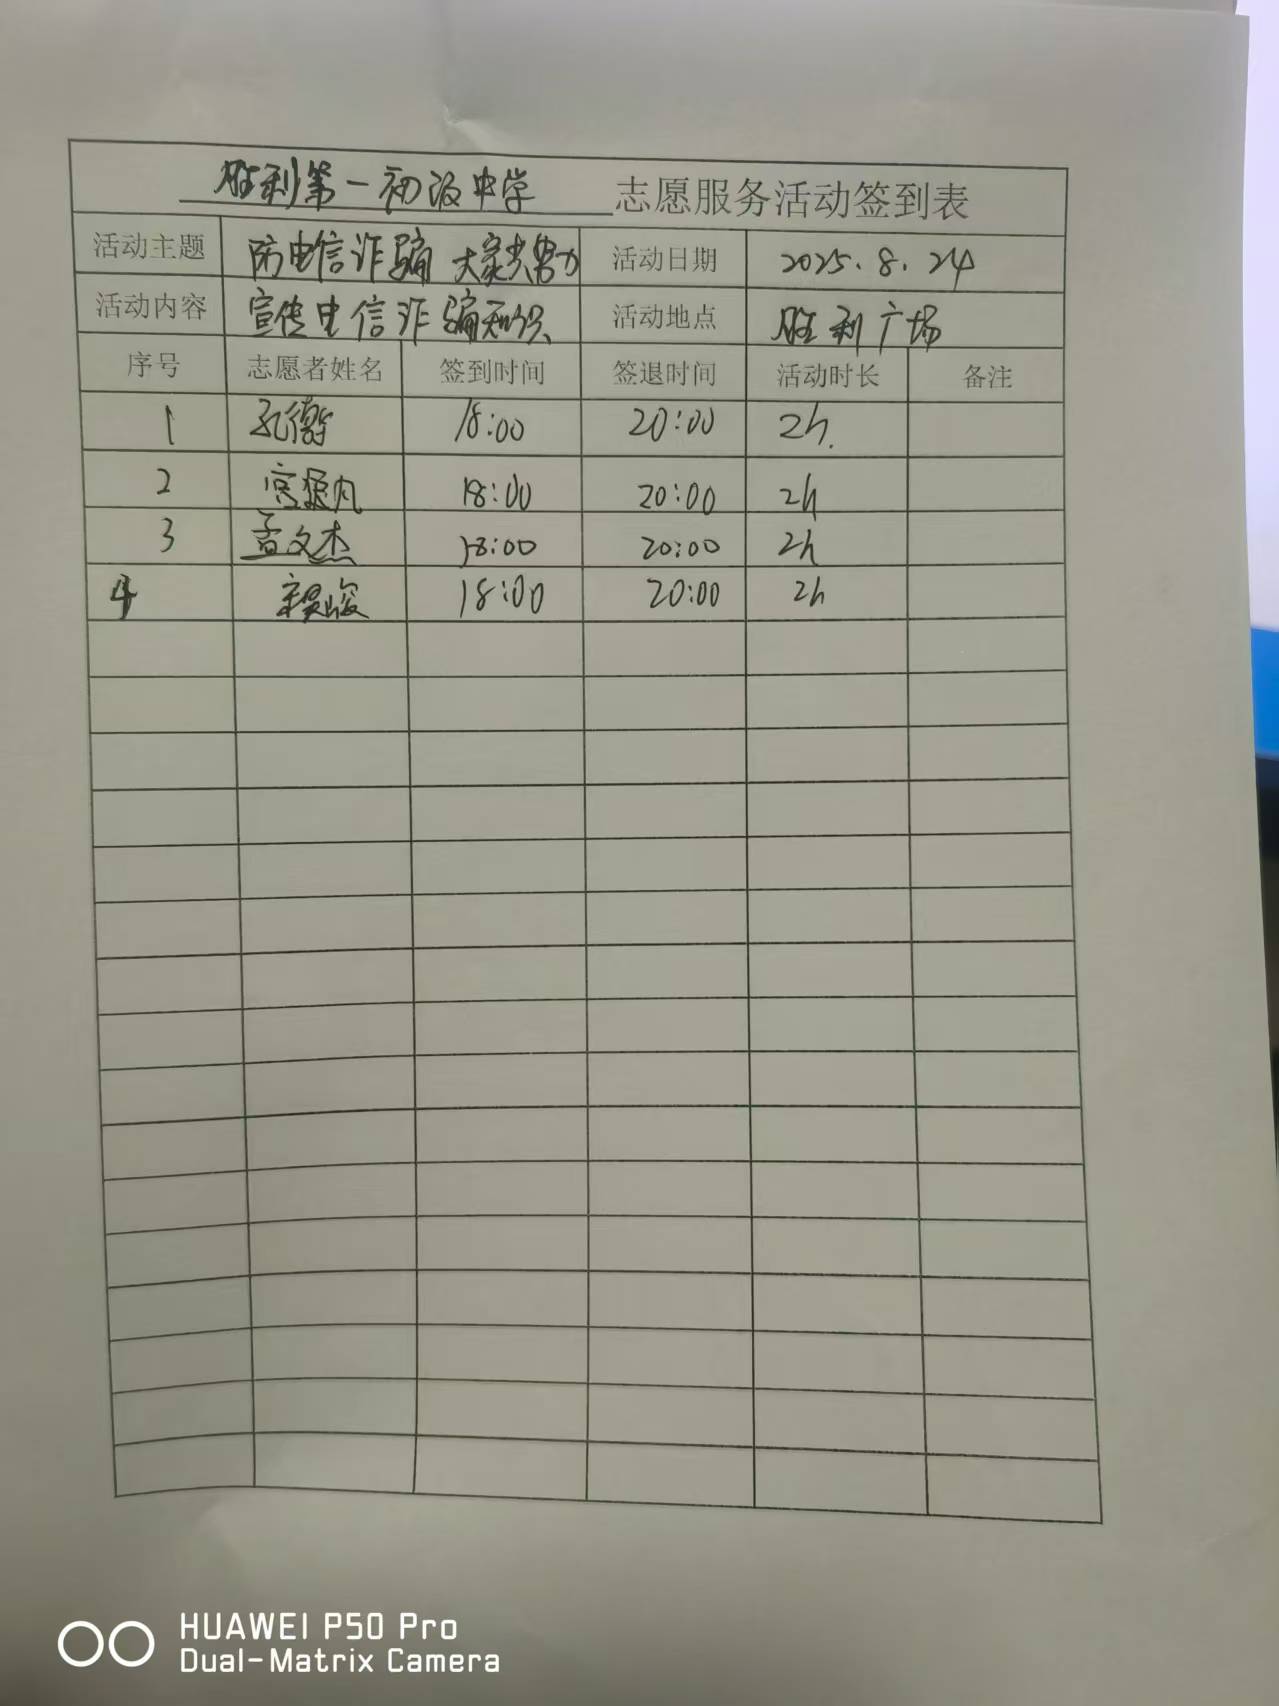 胜利第一初级中学 志愿服务活动签到表
活动主题 防电信诈骗 大家共努力 活动日期 2025.8.24
活动内容 宣传电信诈骗知识 活动地点 胜利广场
序号 志愿者姓名 签到时间 签退时间 活动时长 备注
1 18:00 20:00 2h.
2 18:00 20:00 2h
3 孟文杰 18:00 20:00 2h
4 18:00 20:00 2h
HUAWEI P50 Pro
Dual-Matrix Camera